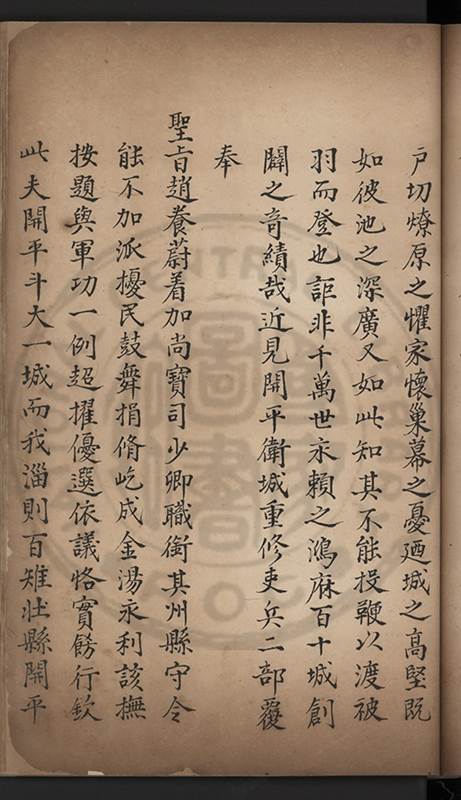 戶切燎原之懼家懷巢幕之憂廼城之高堅既
如彼池之深廣又如此知其不能投鞭以渡被
羽而登也詎非千萬世永賴之鴻庥百十城創
闢之奇績哉近見開平衛城重修吏兵二部覆
奉
聖旨趙養蔚着加尚寶司少卿職銜其州縣守令
能不加派擾民鼓舞捐脩屹成金湯永利該撫
按題與軍功一例超擢優選依議恪實餝行欽
此夫開平斗大一城而我淄則百雉壯縣開平